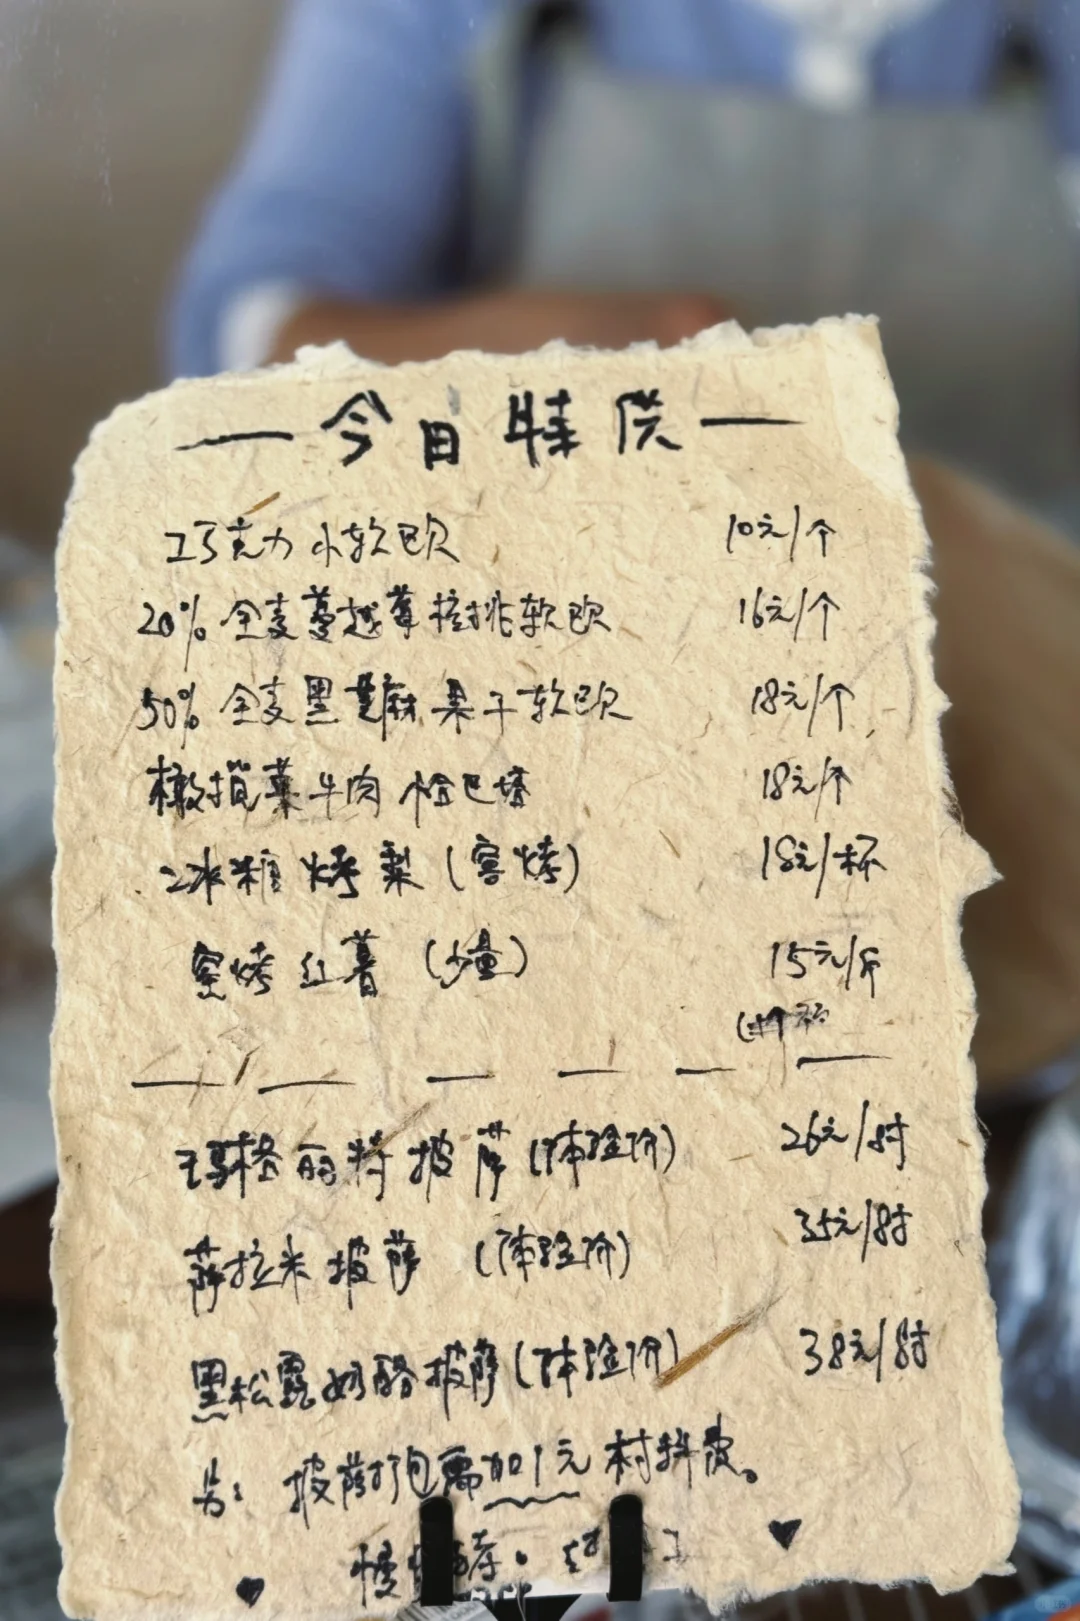 今日特供
巧克力小软欧 10元/个
20% 全麦蔓越莓核桃软欧 16元/个
50% 全麦黑芝麻果干软欧 18元/个
橄榄菜牛肉恰巴塔 18元/个
冰糖烤梨(窑烤) 18元/杯
窑烤红薯(少量) 15元/斤
玛格丽特披萨(体验价) 26元/8寸
萨拉米披萨(体验价) 35元/8寸
黑松露奶酪披萨(体验价) 38元/8寸
另: 披萨打包需加1元材料费。
慢